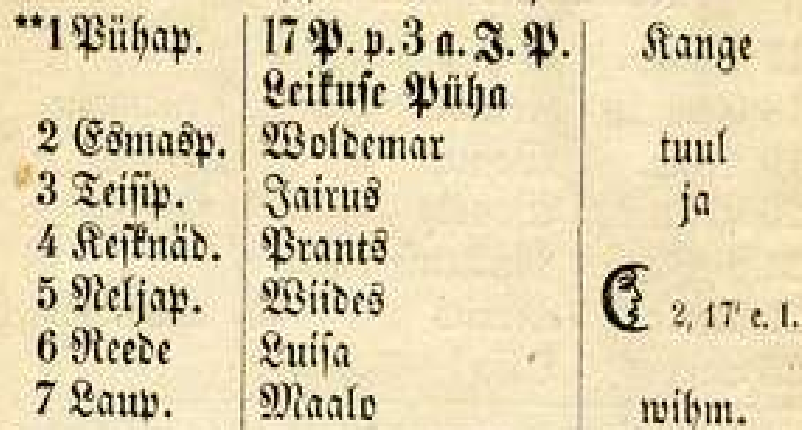 **1 Pühap. 17 P. p. 3 a. J. P. Kange
Leikuse Püha
2 Esmasp. Woldemar tuul
3 Teisip. Jairus ja
4 Kesknäd. Prants
5 Neljap. Wiides 2, 17' e. l.
6 Reede Luisa
7 Laup. Maalo wihm.